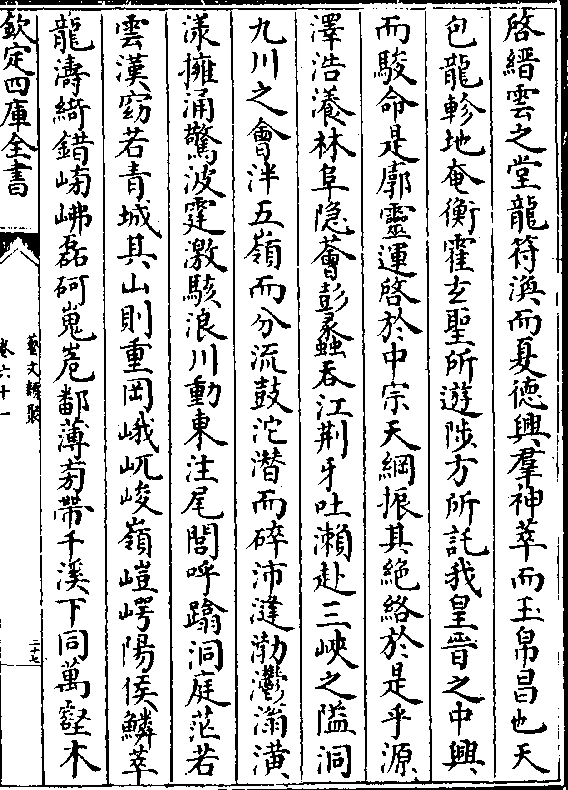 啓縉雲之堂龍符渙而夏德興羣神萃而玉帛昌也天
包龍軫地奄衡霍玄聖所遊陟方所託我皇晉之中興
而駿命是廓靈運啓於中宗天綱振其絶絡於是乎源
澤浩瀁林阜隐薈彭蠡吞江荆牙吐瀨赴三峽之隘洞
九川之會泮五嶺而分流鼓沱潜而碎沛漨渤灪滃潢
漾擁涌驚波霆激駭浪川動東注尾閭呼翕洞庭茫若
雲漢窈若青城其山則重岡峨屼峻嶺嵦崿陽侯鱗萃
龍濤綺錯㟐岪磊砢嵬巹鄱薄菊帶千溪下同萬壑木
欽定四庫全書
藝文類聚
卷六十一
二十七